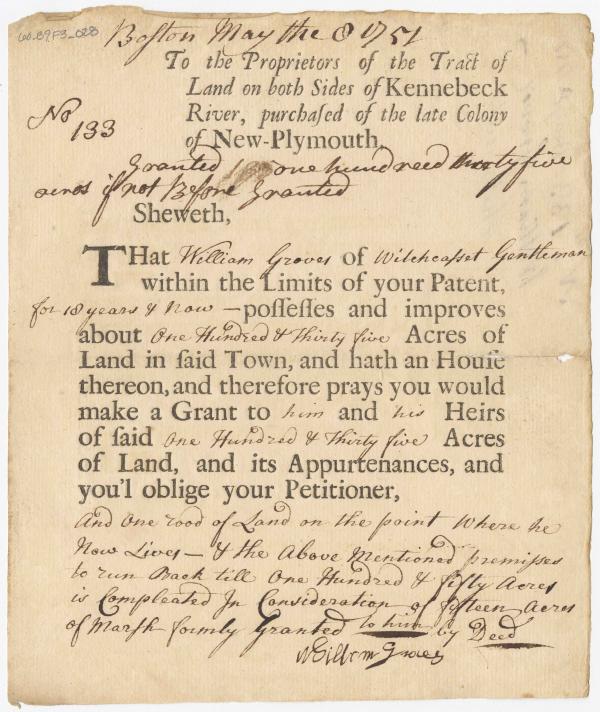 60.89F3_028
Boston May the 8 1751
To the Proprietors of the Tract of
Land on both Sides of Kennebeck
River, purchaſed of the late Colony
of New-Plymouth,
No
133
Granted one hundreed thirty five
acres if not Before Granted
Sheweth,
THat William Groves of Witchcasset Gentleman
within the Limits of your Patent,
for 18 years & Now — poſſeſſes and improves
about One Hundred & Thirty five Acres of
Land in ſaid Town, and hath an Houſe
thereon, and therefore prays you would
make a Grant to him and his Heirs
of ſaid One Hundred & Thirty five Acres
of Land, and its Appurtenances, and
you'l oblige your Petitioner,
And One rood of Land on the point Where he
Now Lives — & the Above Mentioned premisses
to run Back till One Hundred & fifty Acres
is Compleated In Consideration of fifteen Acres
of Marsh formly Granted to him by Deed
William Groves